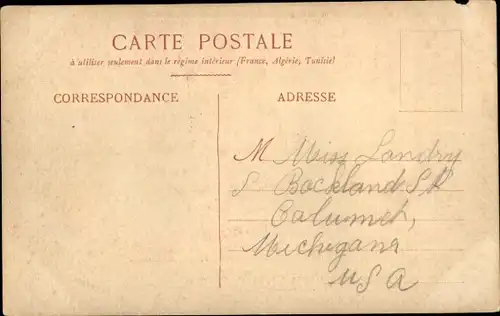 CARTE POSTALE
à utiliser seulement dans le régime intérieur (France, Algérie, Tunisie)
CORRESPONDANCE
ADRESSE
M Miss Landry
S Bockland St
Calumet,
Michigana
USA